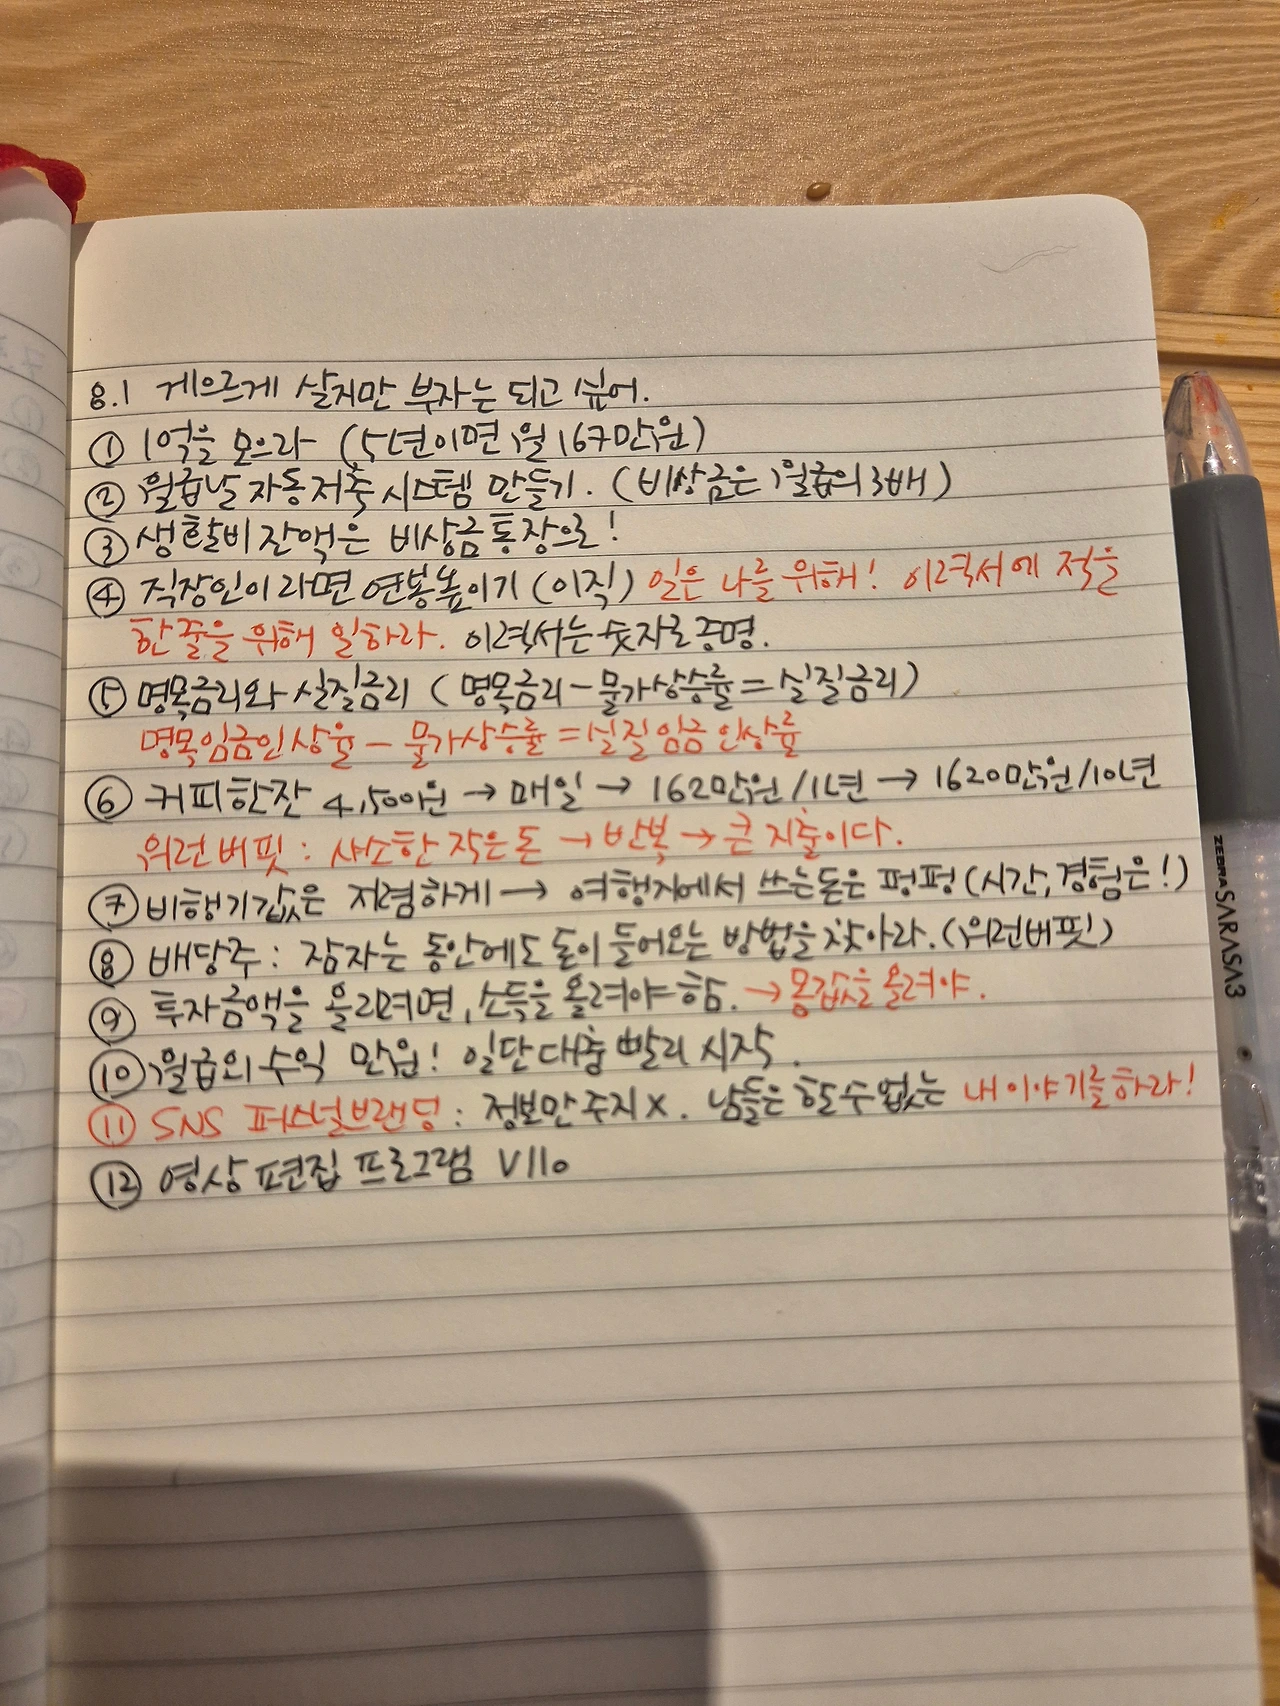 8.1 게으르게 살지만 부자는 되고 싶어.
① 1억을 모으라 (5년이면 월 167만원)
② 월급날 자동저축 시스템 만들기. (비상금은 월급의 3배)
③ 생활비 잔액은 비상금통장으로!
④ 직장인이라면 연봉높이기 (이직) 일은 나를 위해! 이력서에 적을
한줄을 위해 일하라. 이력서는 숫자로 증명.
⑤ 명목금리와 실질금리 (명목금리 - 물가상승률 = 실질금리)
명목임금인상율 - 물가상승률 = 실질임금 인상률
⑥ 커피한잔 4,500원 → 매일 → 162만원/1년 → 1620만원/10년
워런버핏 : 사소한 작은돈 → 반복 → 큰 지출이다.
⑦ 비행기값은 저렴하게 → 여행지에서 쓰는돈은 펑펑 (시간, 경험은!)
⑧ 배당주 : 잠자는 동안에도 돈이 들어오는 방법을 찾아라. (워런버핏)
⑨ 투자금액을 올리려면, 소득을 올려야 함. → 몸값을 올려야.
⑩ 월급외 수익 만원! 일단 대충 빨리 시작.
⑪ SNS 퍼스널브랜딩 : 정보만 주지 X. 남들은 할 수 없는 내 이야기를 하라!
⑫ 영상 편집 프로그램 Vllo
ZEBRA SARASA3